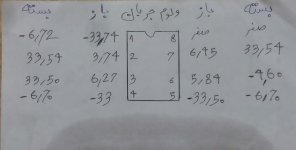 بسته باز ولوم جریان باز بسته
-6,72 -33,74 1 8 صفر صفر
33,54 3,74 2 7 6,45 33,54
33,50 6,27 3 6 5,84 -4,60
-6,70 -33 4 5 -33,50 -6,70